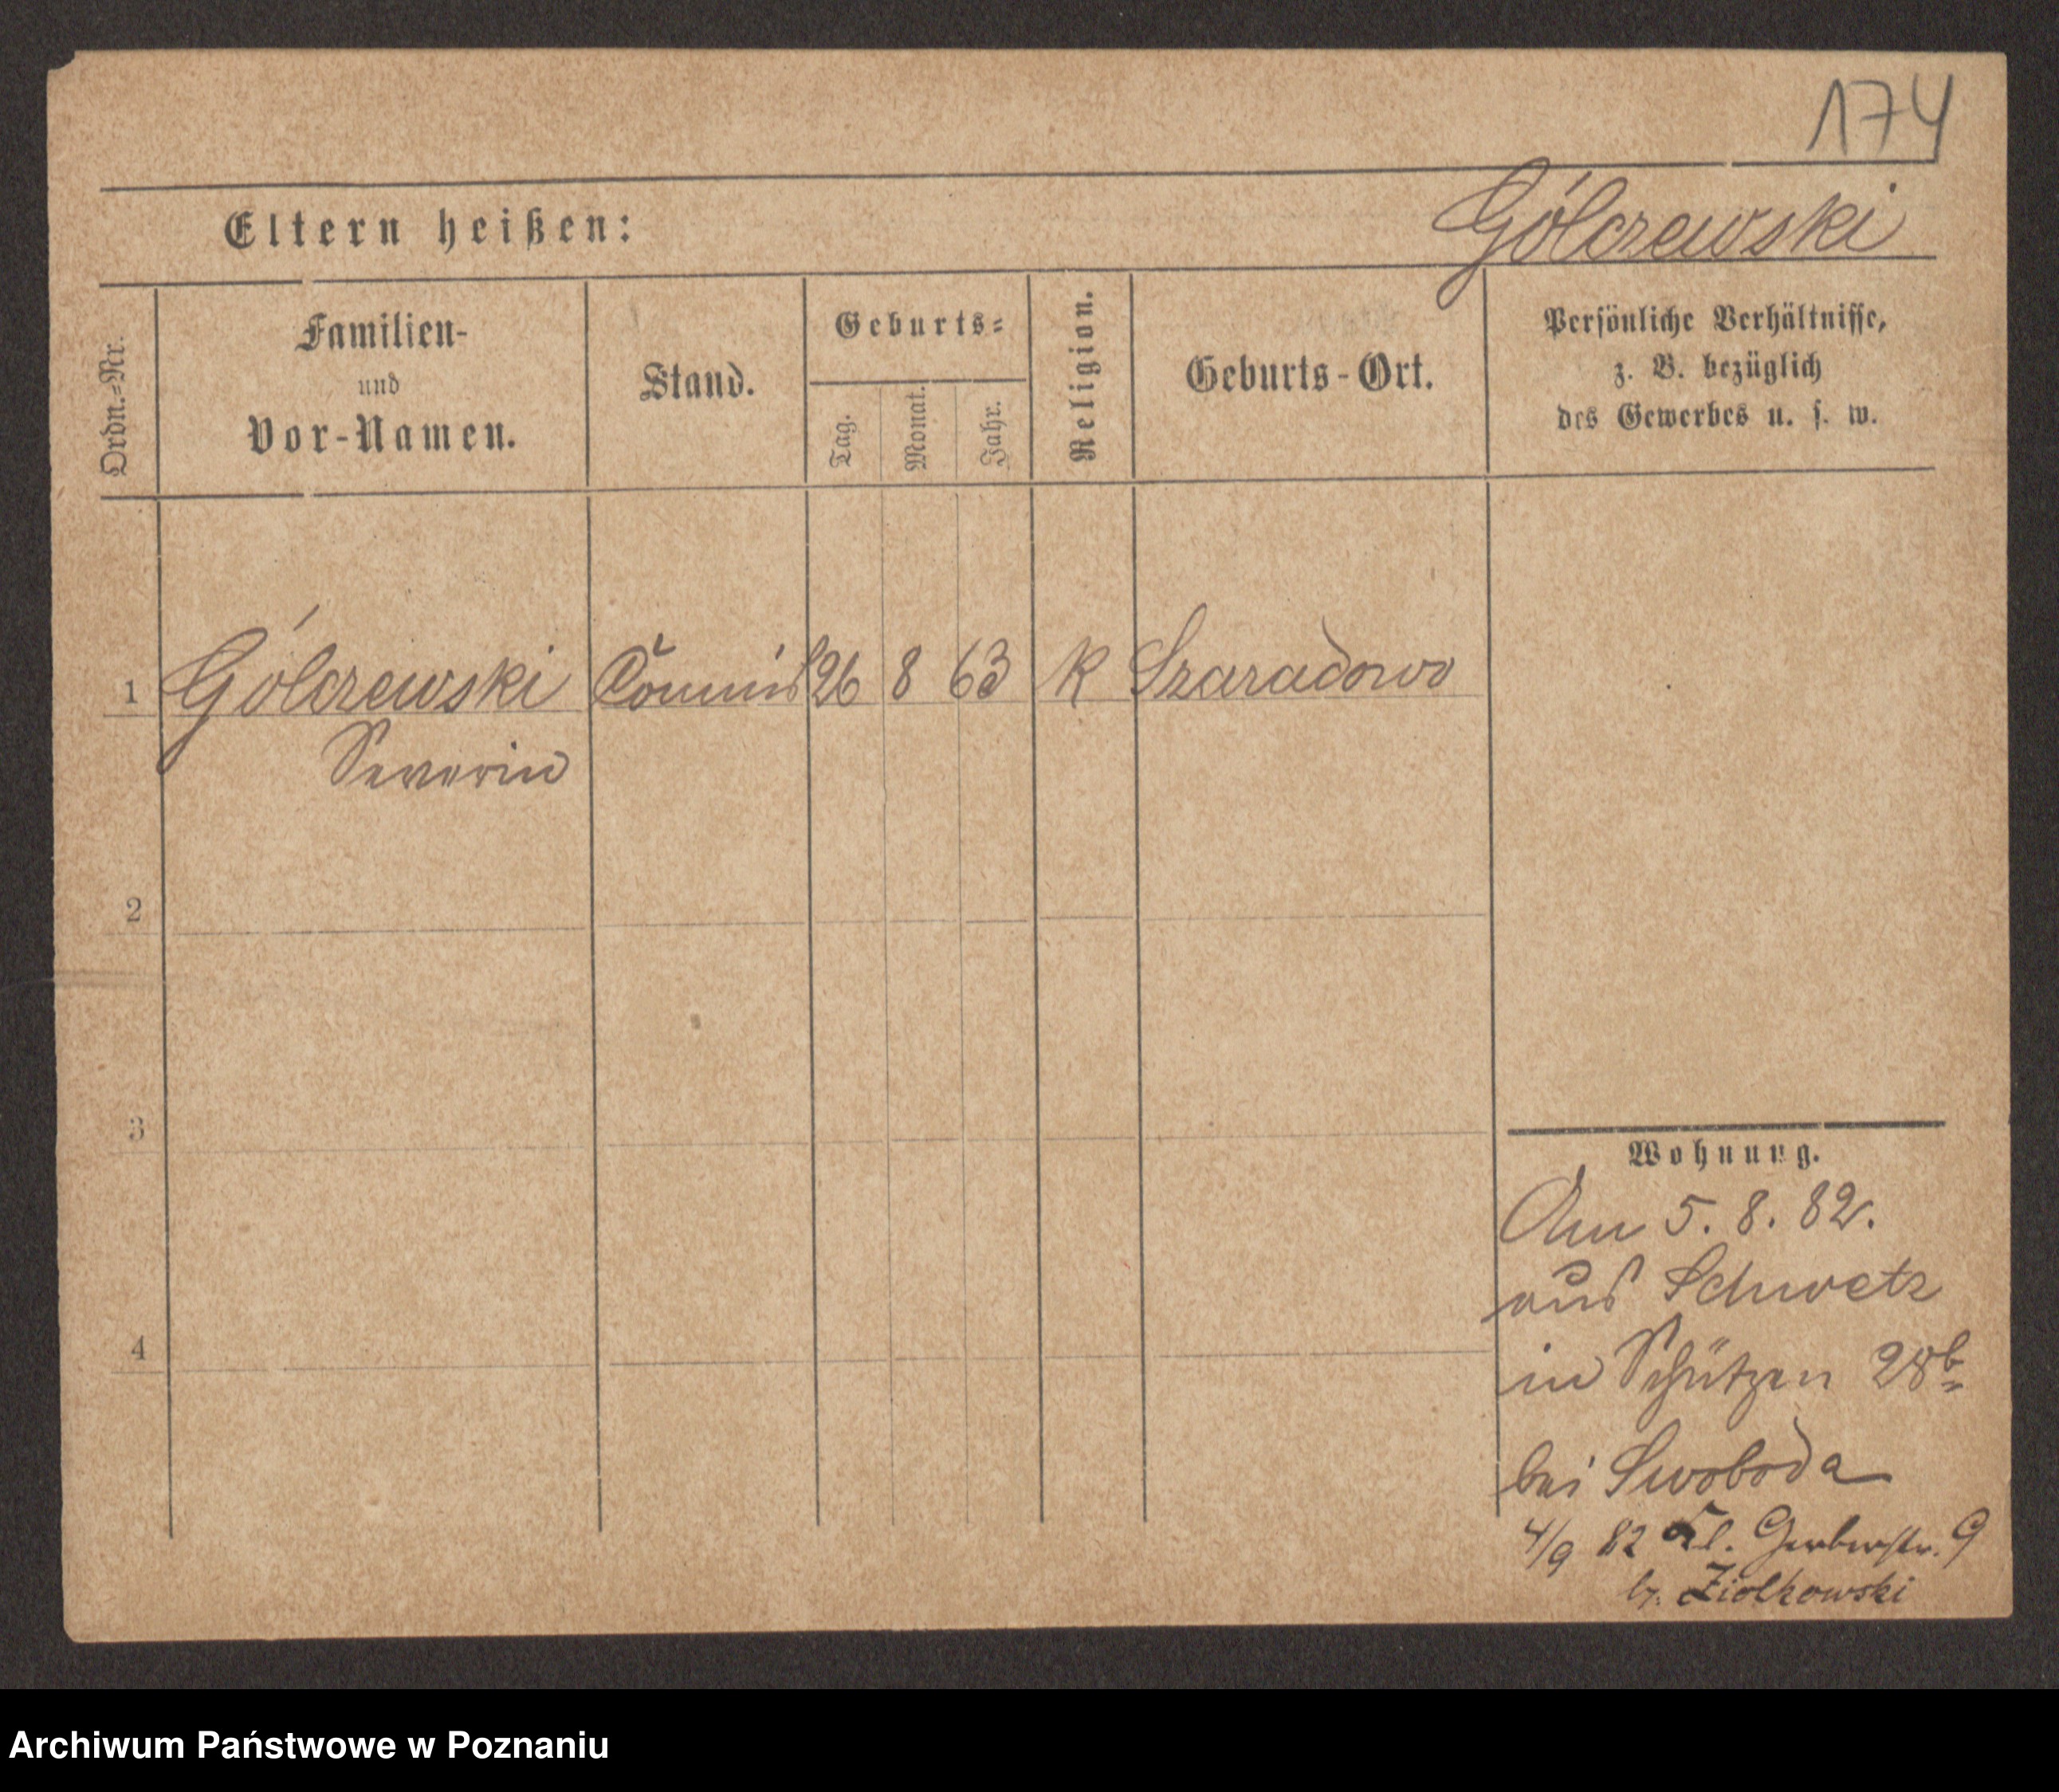 174
Eltern heißen: Gólczewski
Ordn.=Nr.
Familien-
und
Vor-Namen.
Stand.
Geburts=
Tag.
Monat.
Jahr.
Religion.
Geburts-Ort.
Persönliche Verhältnisse,
z. B. bezüglich
des Gewerbes u. s. w.
1 Gólczewski Commis 26 8 63 K Szaradowo
Severin
2
3
4
Wohnung.
Am 5. 8. 82.
aus Schwetz
in Schützen 28b
bei Swoboda
4/9 82 Kl. Gerberstr. 9
b. Ziolkowski
Archiwum Państwowe w Poznaniu